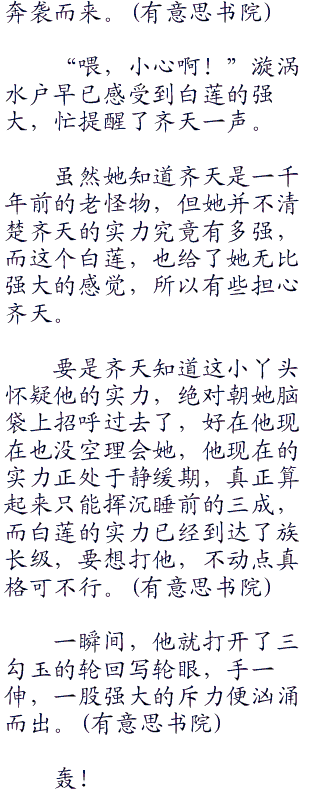 奔袭而来。(有意思书院)
“喂，小心啊！”漩涡
水户早已感受到白莲的强
大，忙提醒了齐天一声。
虽然她知道齐天是一千
年前的老怪物，但她并不清
楚齐天的实力究竟有多强，
而这个白莲，也给了她无比
强大的感觉，所以有些担心
齐天。
要是齐天知道这小丫头
怀疑他的实力，绝对朝她脑
袋上招呼过去了，好在他现
在也没空理会她，他现在的
实力正处于静缓期，真正算
起来只能挥沉睡前的三成，
而白莲的实力已经到达了族
长级，要想打他，不动点真
格可不行。(有意思书院)
一瞬间，他就打开了三
勾玉的轮回写轮眼，手一
伸，一股强大的斥力便汹涌
而出。(有意思书院)
轰！